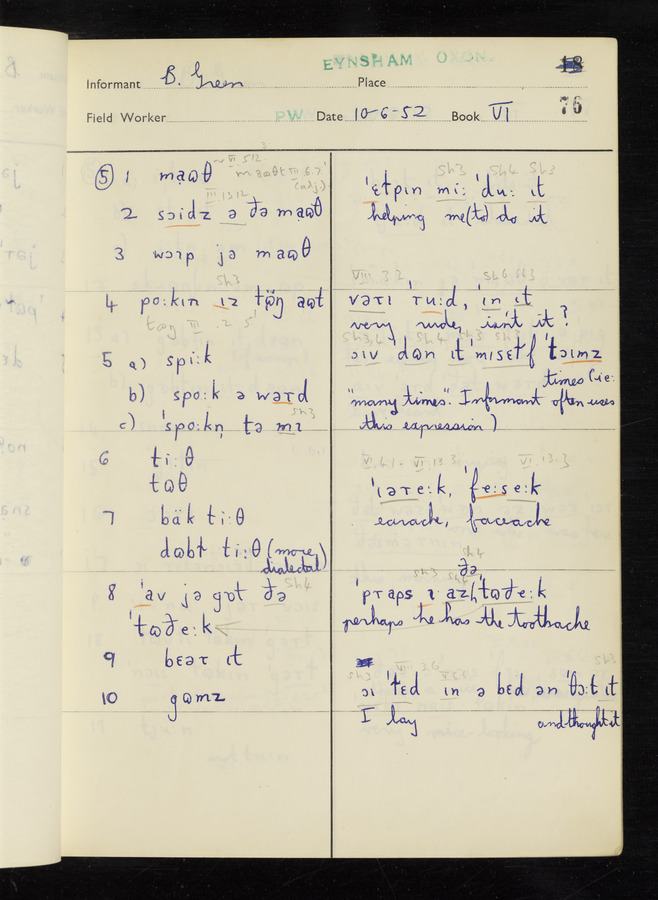 EYNSHAM OXON.
18
Informant B. Green Place
76
Field Worker PW Date 10-6-52 Book VI
⑤ 1 maɷθ
2 sɔidz ə ðə maɷθ
3 wɔɹp jə maɷθ
sh3
4 po:kin ɪz tɷ̈ŋ aɷt
tɷŋ III .2 5
5 a) spi:k
b) spo:k ə wəɹd
sh3
c) 'spo:kn̩ tə mɪ
6 ti:θ
tɷθ
7 bäk ti:θ
dɷbɫ ti:θ (more
dialectal)
8 'av jə gɒt ðə sh4
'tɷðe:k
9 bɛəɹ ɪt
10 gɷmz
sh3 sh4 sh3
'ɛɫpɪn mi: 'du: ɪt
helping me(to) do it
VIII 3 2 sh6 sh3
vəɹi 'ɹu:d, 'in ɪt
very rude, isn't it?
ɔɪv dɷn ɪt 'mɪsɛɫf 'tɔɪmz
times (ie:
"many times". Informant often uses
this expression)
VI.4.1 - VI.13.3 VI.13.3
'ɪəɹe:k, 'fe:se:k
earache, faceache
sh4
ðə
'pɹaps ɪ azh 'tɷðe:k
perhaps he has the toothache
sh3 VIII 3.6 sh3
ɔɪ 'ɫɛd ɪn ə bɛd ən 'θɔ:t ɪt
I lay and thought it